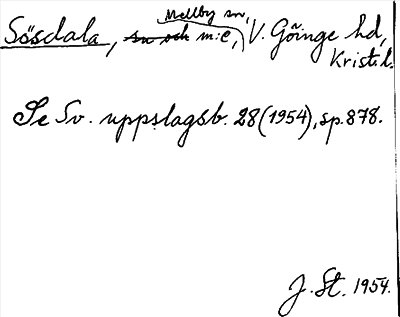 Mellby sn,
Sösdala, sn och m:e, V. Göinge hd,
Krist. l.
Se Sv. uppslagsb. 28 (1954), sp. 878.
J. St. 1954.